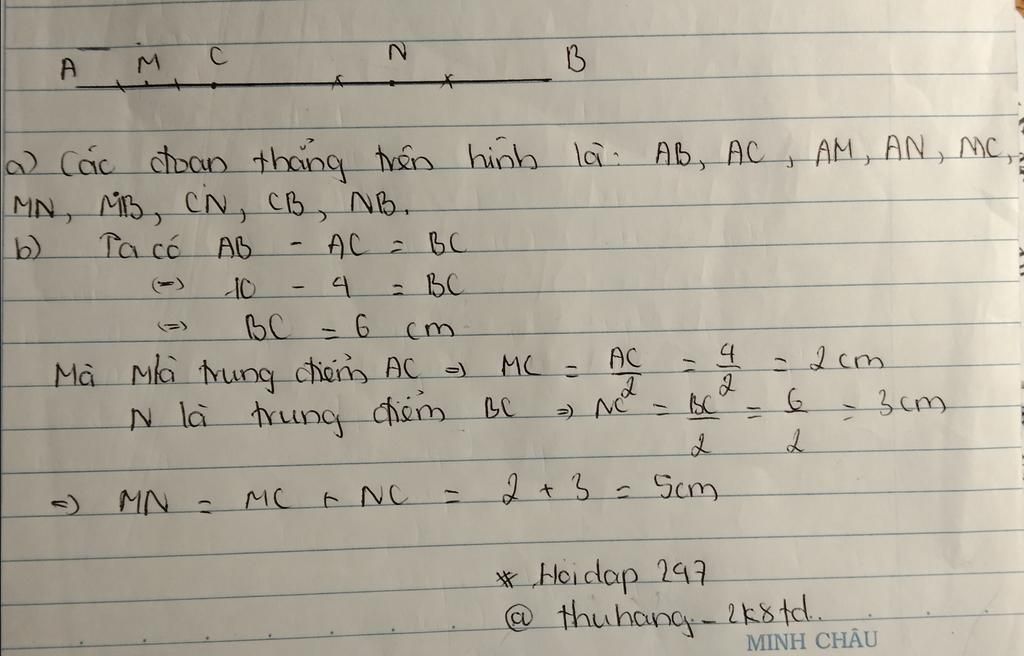 A M C N B
a) Các đoạn thẳng trên hình là: AB, AC, AM, AN, MC,
MN, MB, CN, CB, NB.
b) Ta có AB - AC = BC
(=) 10 - 4 = BC
(=) BC = 6 cm
Mà M là trung điểm AC => MC = AC/2 = 4/2 = 2 cm
N là trung điểm BC => NC = BC/2 = 6/2 = 3 cm
=> MN = MC + NC = 2 + 3 = 5cm
* Hoidap 247
@ thuhang_2k8td.
MINH CHÂU